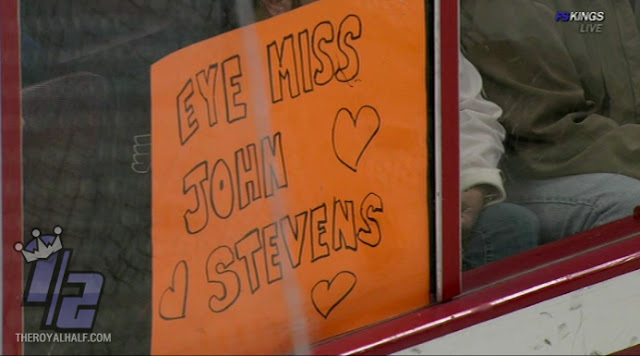 FSKINGS
LIVE
EYE MISS
JOHN
STEVENS
1/2
THEROYALHALF.COM